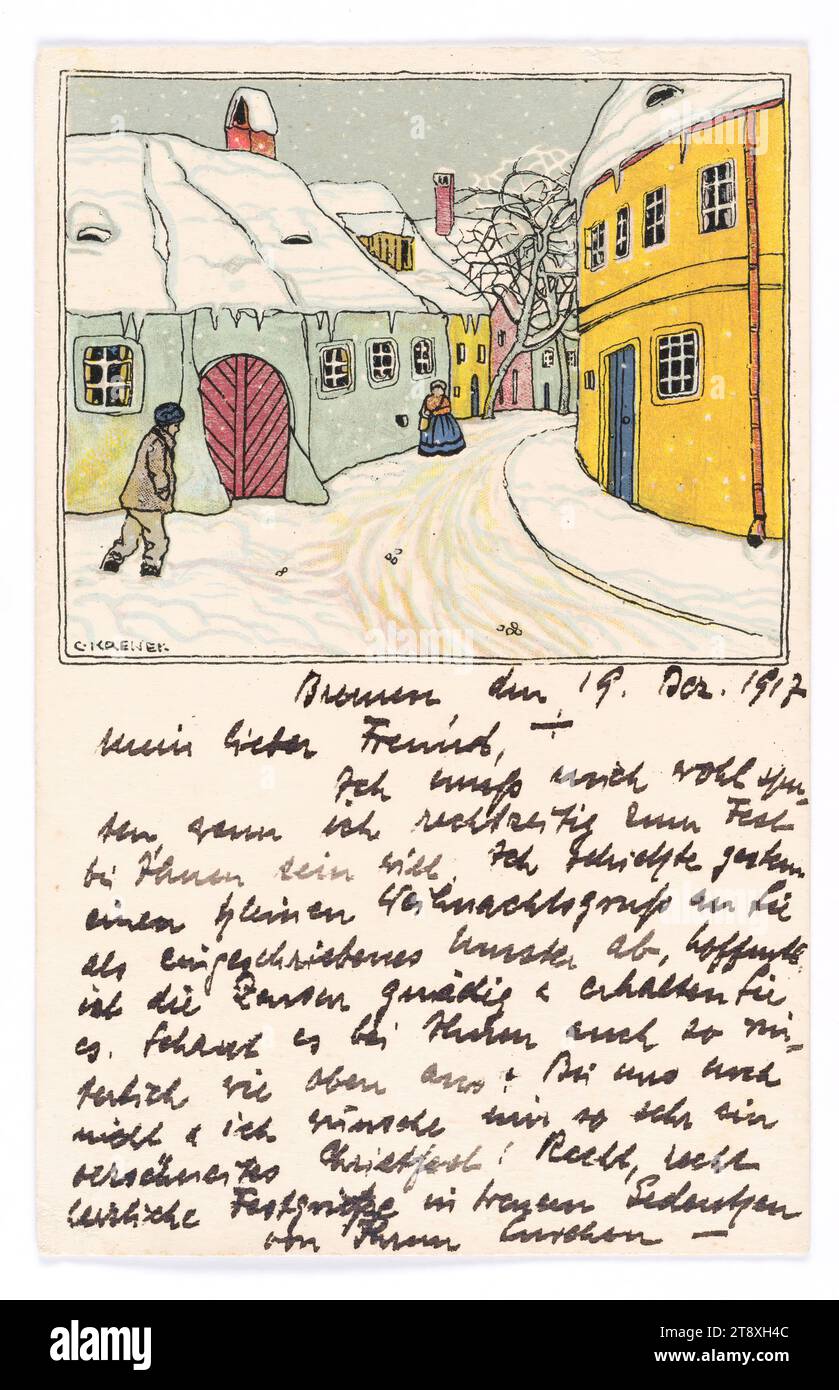 C·KRENEK·
Bremen, den 19. Dez. 1917
mein lieber Freund,
Ich muß mich wohl spu-
ten, wenn ich rechtzeitig zum Fest
bei Ihnen sein will. Ich schickte gestern
einen kleinen Weihnachtsgruß an Sie
als eingeschriebenes Muster ab, hoffentl.
ist die Zensur gnädig & erhalten Sie
es. Schaut es bei Ihnen auch so win-
terlich wie oben aus? Bei uns noch
nicht & ich wünsche mir so sehr ein
verschneites Christfest! Recht, recht
herzliche Festgrüße in treuem Gedenken
von Ihrem
alamy
alamy
Image ID: 2T8XH4C
www.alamy.com